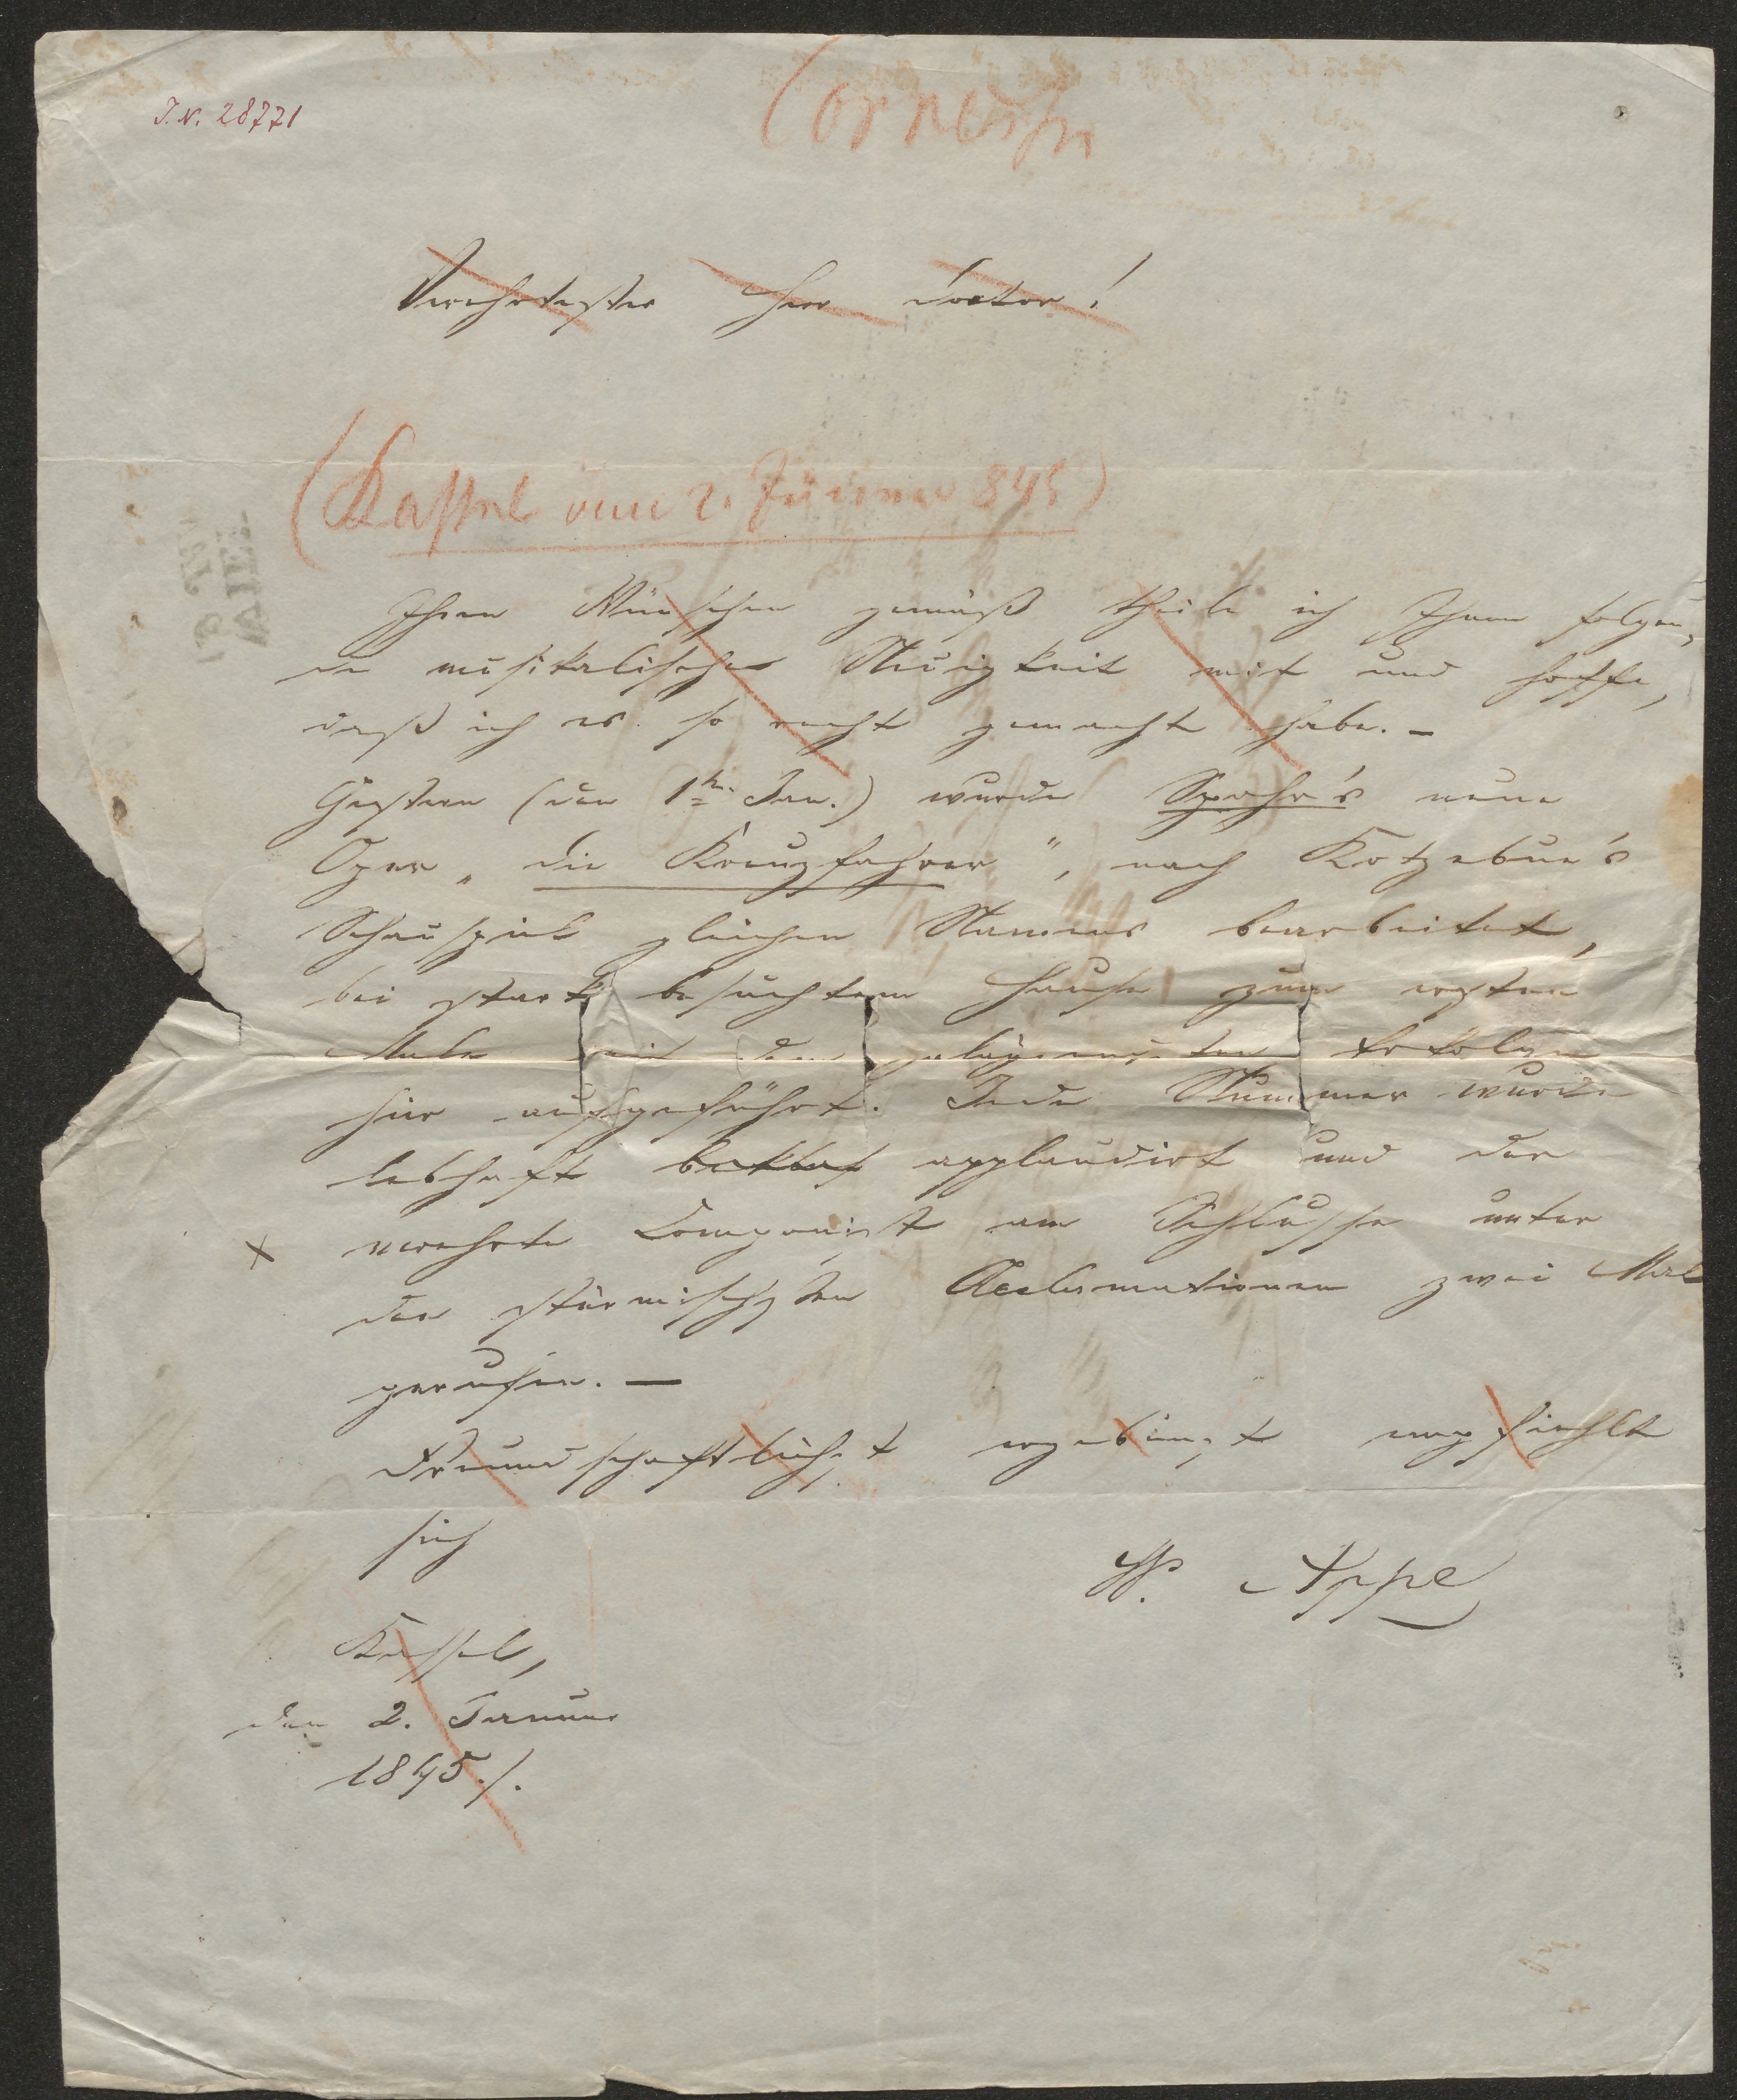 I.N. 28771
Verehrtester Herr Doctor!
(Kassel vom 2. Jänner 845)
Ihren Wünschen gemäß theile ich Ihnen folgen-
de musikalische Neuigkeit mit und hoffe,
daß ich es so recht gemacht habe. –
Gestern (den 1ten Jan.) wurde Spohr's neue
Oper „die Kreuzfahrer", nach Kotzebue's
Schauspiel gleichen Namens bearbeitet,
bei stark besuchtem Hause zum ersten
Male mit dem glänzendsten Erfolge
hier aufgeführt. Jede Nummer wurde
lebhaft applaudirt und der
verehrte Componist am Schlusse unter
den stürmischsten Acclamationen zwei Mal
gerufen. —
Freundschaftlichst ergebenst empfiehlt
sich
W. Appe
Kassel,
den 2. Januar
1845./.